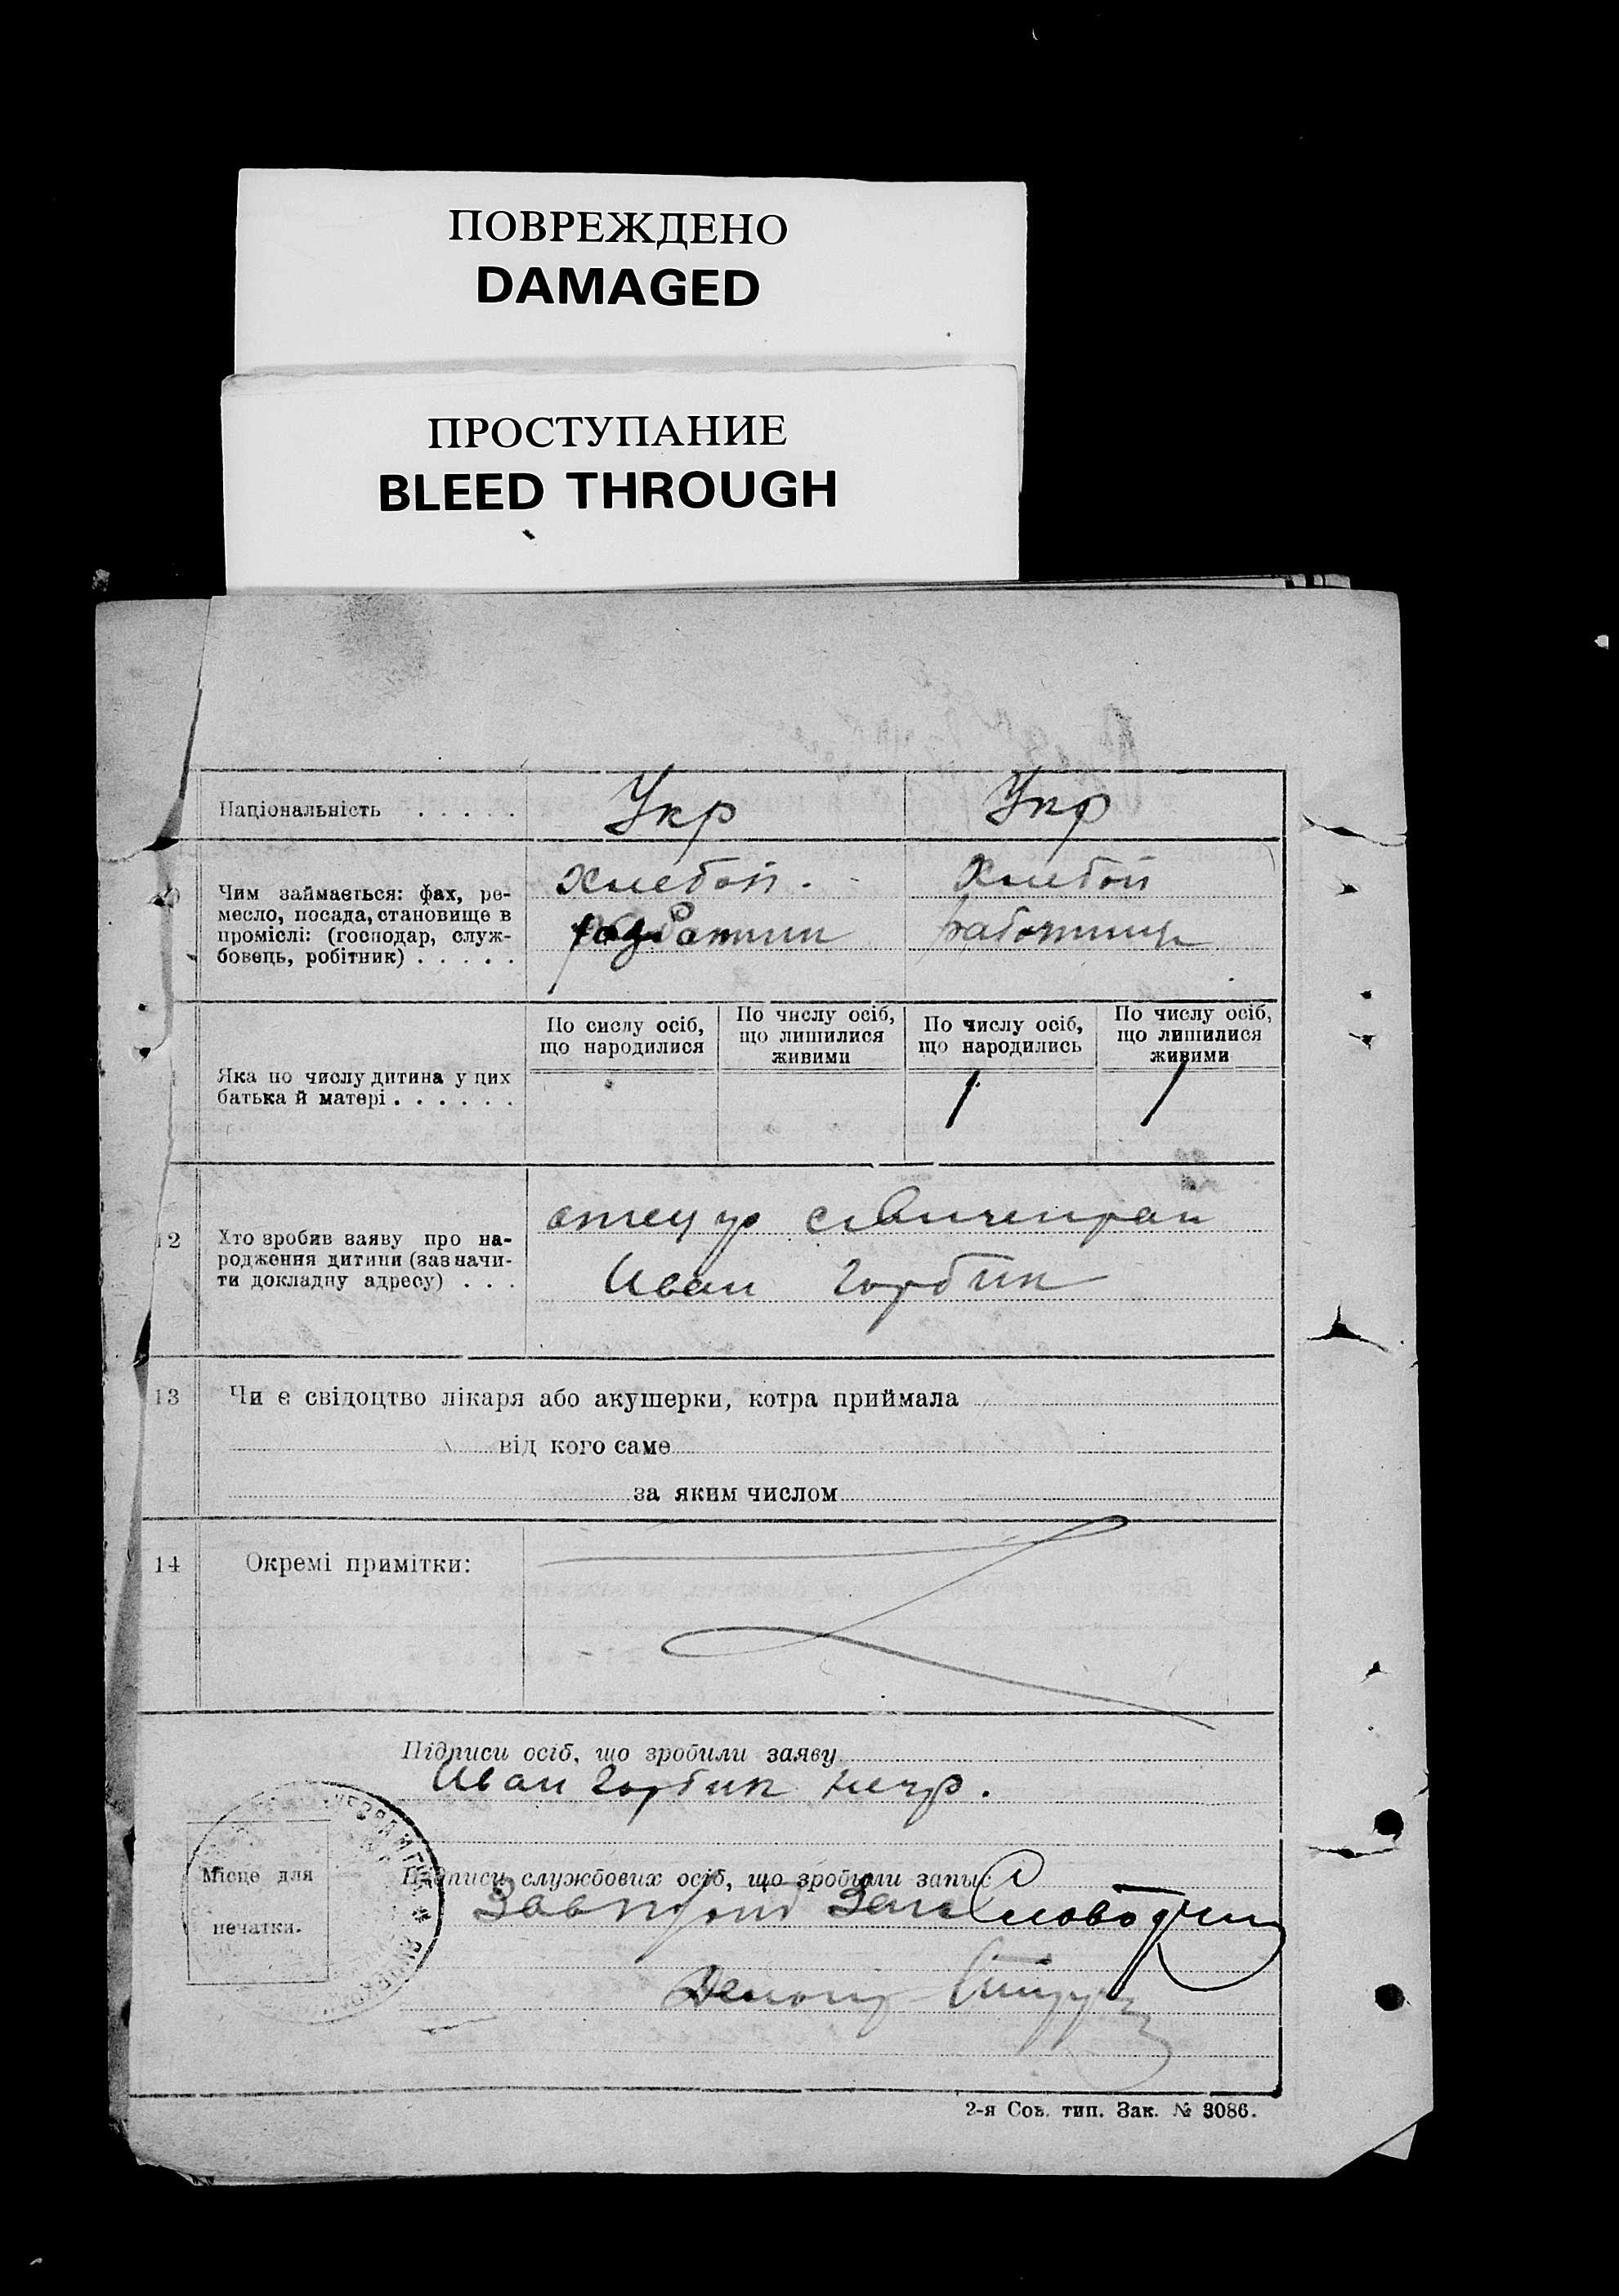 ПОВРЕЖДЕНО
DAMAGED
ПРОСТУПАНИЕ
BLEED THROUGH
Національність . . . . . Укр Укр
Чим займається: фах, ре-
месло, посада, становище в
проміслі: (господар, служ-
бовець, робітник) . . . . .
Хлебоп. Хлебоп
работниц
Яка по числу дитина у цих
батька й матері . . . . . .
По сислу осіб,
що народилися
По числу осіб,
що лишилися
живими
По числу осіб,
що народились
По числу осіб,
що лишилися
живими
1 1
12
Хто зробив заяву про на-
родження дитини (зазначи-
ти докладну адресу) . . .
отец
Иван Горбик
13 Чи є свідоцтво лікаря або акушерки, котра приймала
від кого саме
за яким числом
14 Окремі примітки:
Підписи осіб, що зробили заяву
Иван Горбик негр.
Місце для
печатки.
Підписи службових осіб, що зробили запис
2-я Сов. тип. Зак. № 3086.